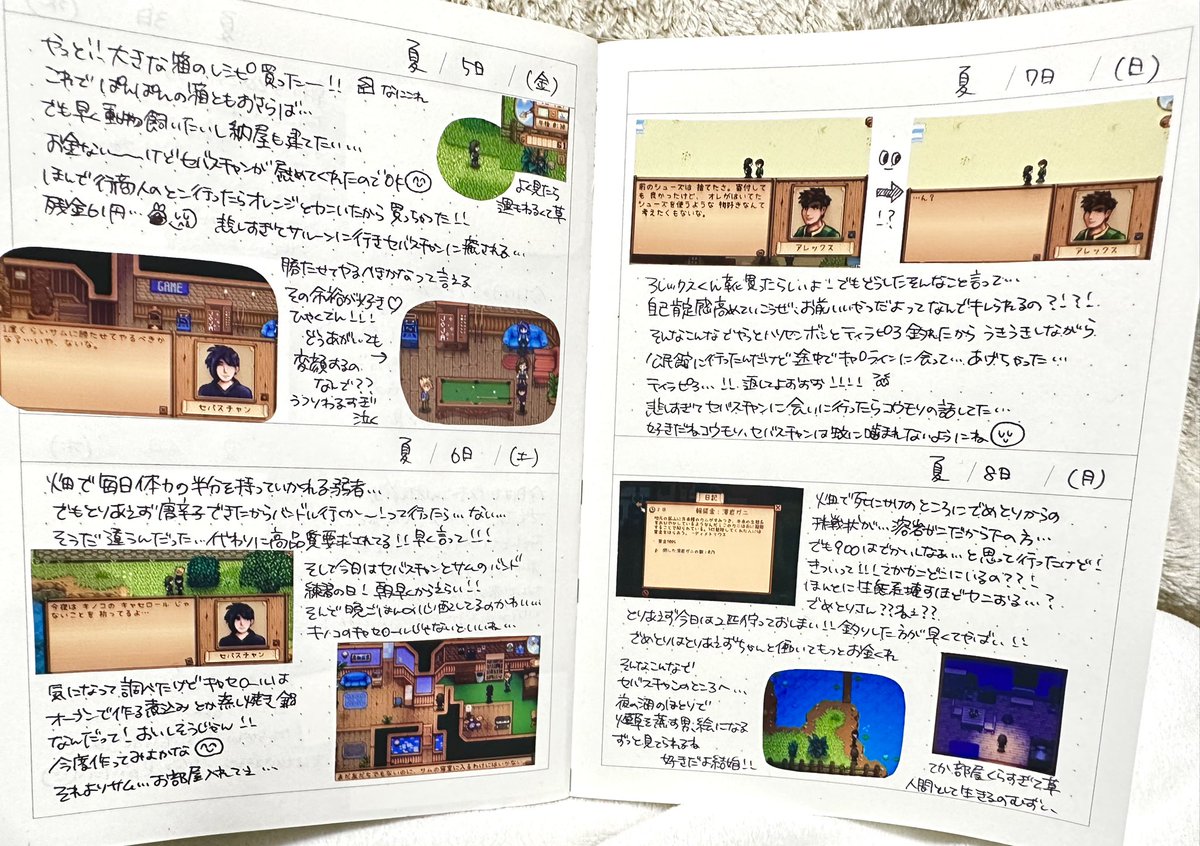 夏 / 5日 (金)
やっと!! 大きな箱のレシピ買ったー!! なにこれ
これでぱんぱんの箱ともおさらば…
でも早く動物飼いたいし納屋も建てたい…
お金ない〜〜けどセバスチャンが慰めてくれたのでOK
ほんで行商人のとこ行ったらオレンジとカニいたから買っちゃった!!
残金61円… 悲しすぎてサルーンに行きセバスチャンに癒される…
よく見たら
運もわるくて草
GAME
1度くらいサムに勝たせてやるべきか
な?…いいや、ないな。
セバスチャン
勝たせてやるべきかなって言える
その余裕が好き♡
ひゃくてん!!!
どうあがいても
変顔するの
なんで??
うつりわるすぎ
泣く
夏 / 6日 (土)
畑で毎日体力の半分を持っていかれる弱者…
でもとりあえず唐辛子できたからバンドル行くか〜!って行ったら…ない…
そうだ違うんだった…代わりに高品質要求されてる!!早く言って!!!
今夜はキノコのキャセロールじゃ
ないことを祈ってるよ…
セバスチャン
そして今日はセバスチャンとサムのバンド
練習の日!朝早くからえらい!!
そして晩ごはんの心配してるのかわいい…
キノコのキャセロールじゃないといいね…
気になって調べたけどキャセロールは
オーブンで作る煮込みとか蒸し焼き鍋
なんだって!おいしそうじゃん!!
今度作ってみよかな
それよりサム…お部屋入れてえ…
まだ友だちでもないのに、サムの寝室に入るわけにはいかない。
夏 / 7日 (日)
前のシューズは捨てたさ。寄付して
も良かったけど、オレがはいてた
シューズを使うような物好きなんて
考えたくもないな。
アレックス
!?
…ん?
アレックス
アレックスくん靴買ったらしいよ!でもどうしたそんなこと言って…
自己肯定感高めていこうぜ、お前いいやつだよってなんでキレられるの?!?!
そんなこんなでやっとハリセンボンとティラピア釣れたからうきうきしながら
公民館に行ったんだけど途中でキャロラインに会って…あげちゃった…
ティラピア…!!返してよおおお!!!!
悲しすぎてセバスチャンに会いに行ったらコウモリの話してた…
好きだねコウモリ、セバスチャンは蚊に噛まれないようにね
夏 / 8日 (月)
日記
報奨金:溶岩ガニ
畑で死にかけのところにでめとりからの
挑戦状が…溶岩ガニだからうの方…
でも900はでかいしなあ…と思って行ったけど!
きついって!!!てかカニどこにいるの??!
ほんとに生態系壊すほどカニおる…?
でめとりさん??ねえ??
とりあえず今日は2匹狩っておしまい!!釣りした方が早くてやばい!!
でめとりはとりあえずちゃんと働いてもっとお金くれ
そんなこんなで
セバスチャンのところへ…
夜の湖のほとりで
煙草を蒸す男、絵になる
ずっと見てられるね
好きだよ結婚!!
てか部屋くらすぎて草
人間として生きるのむずい、